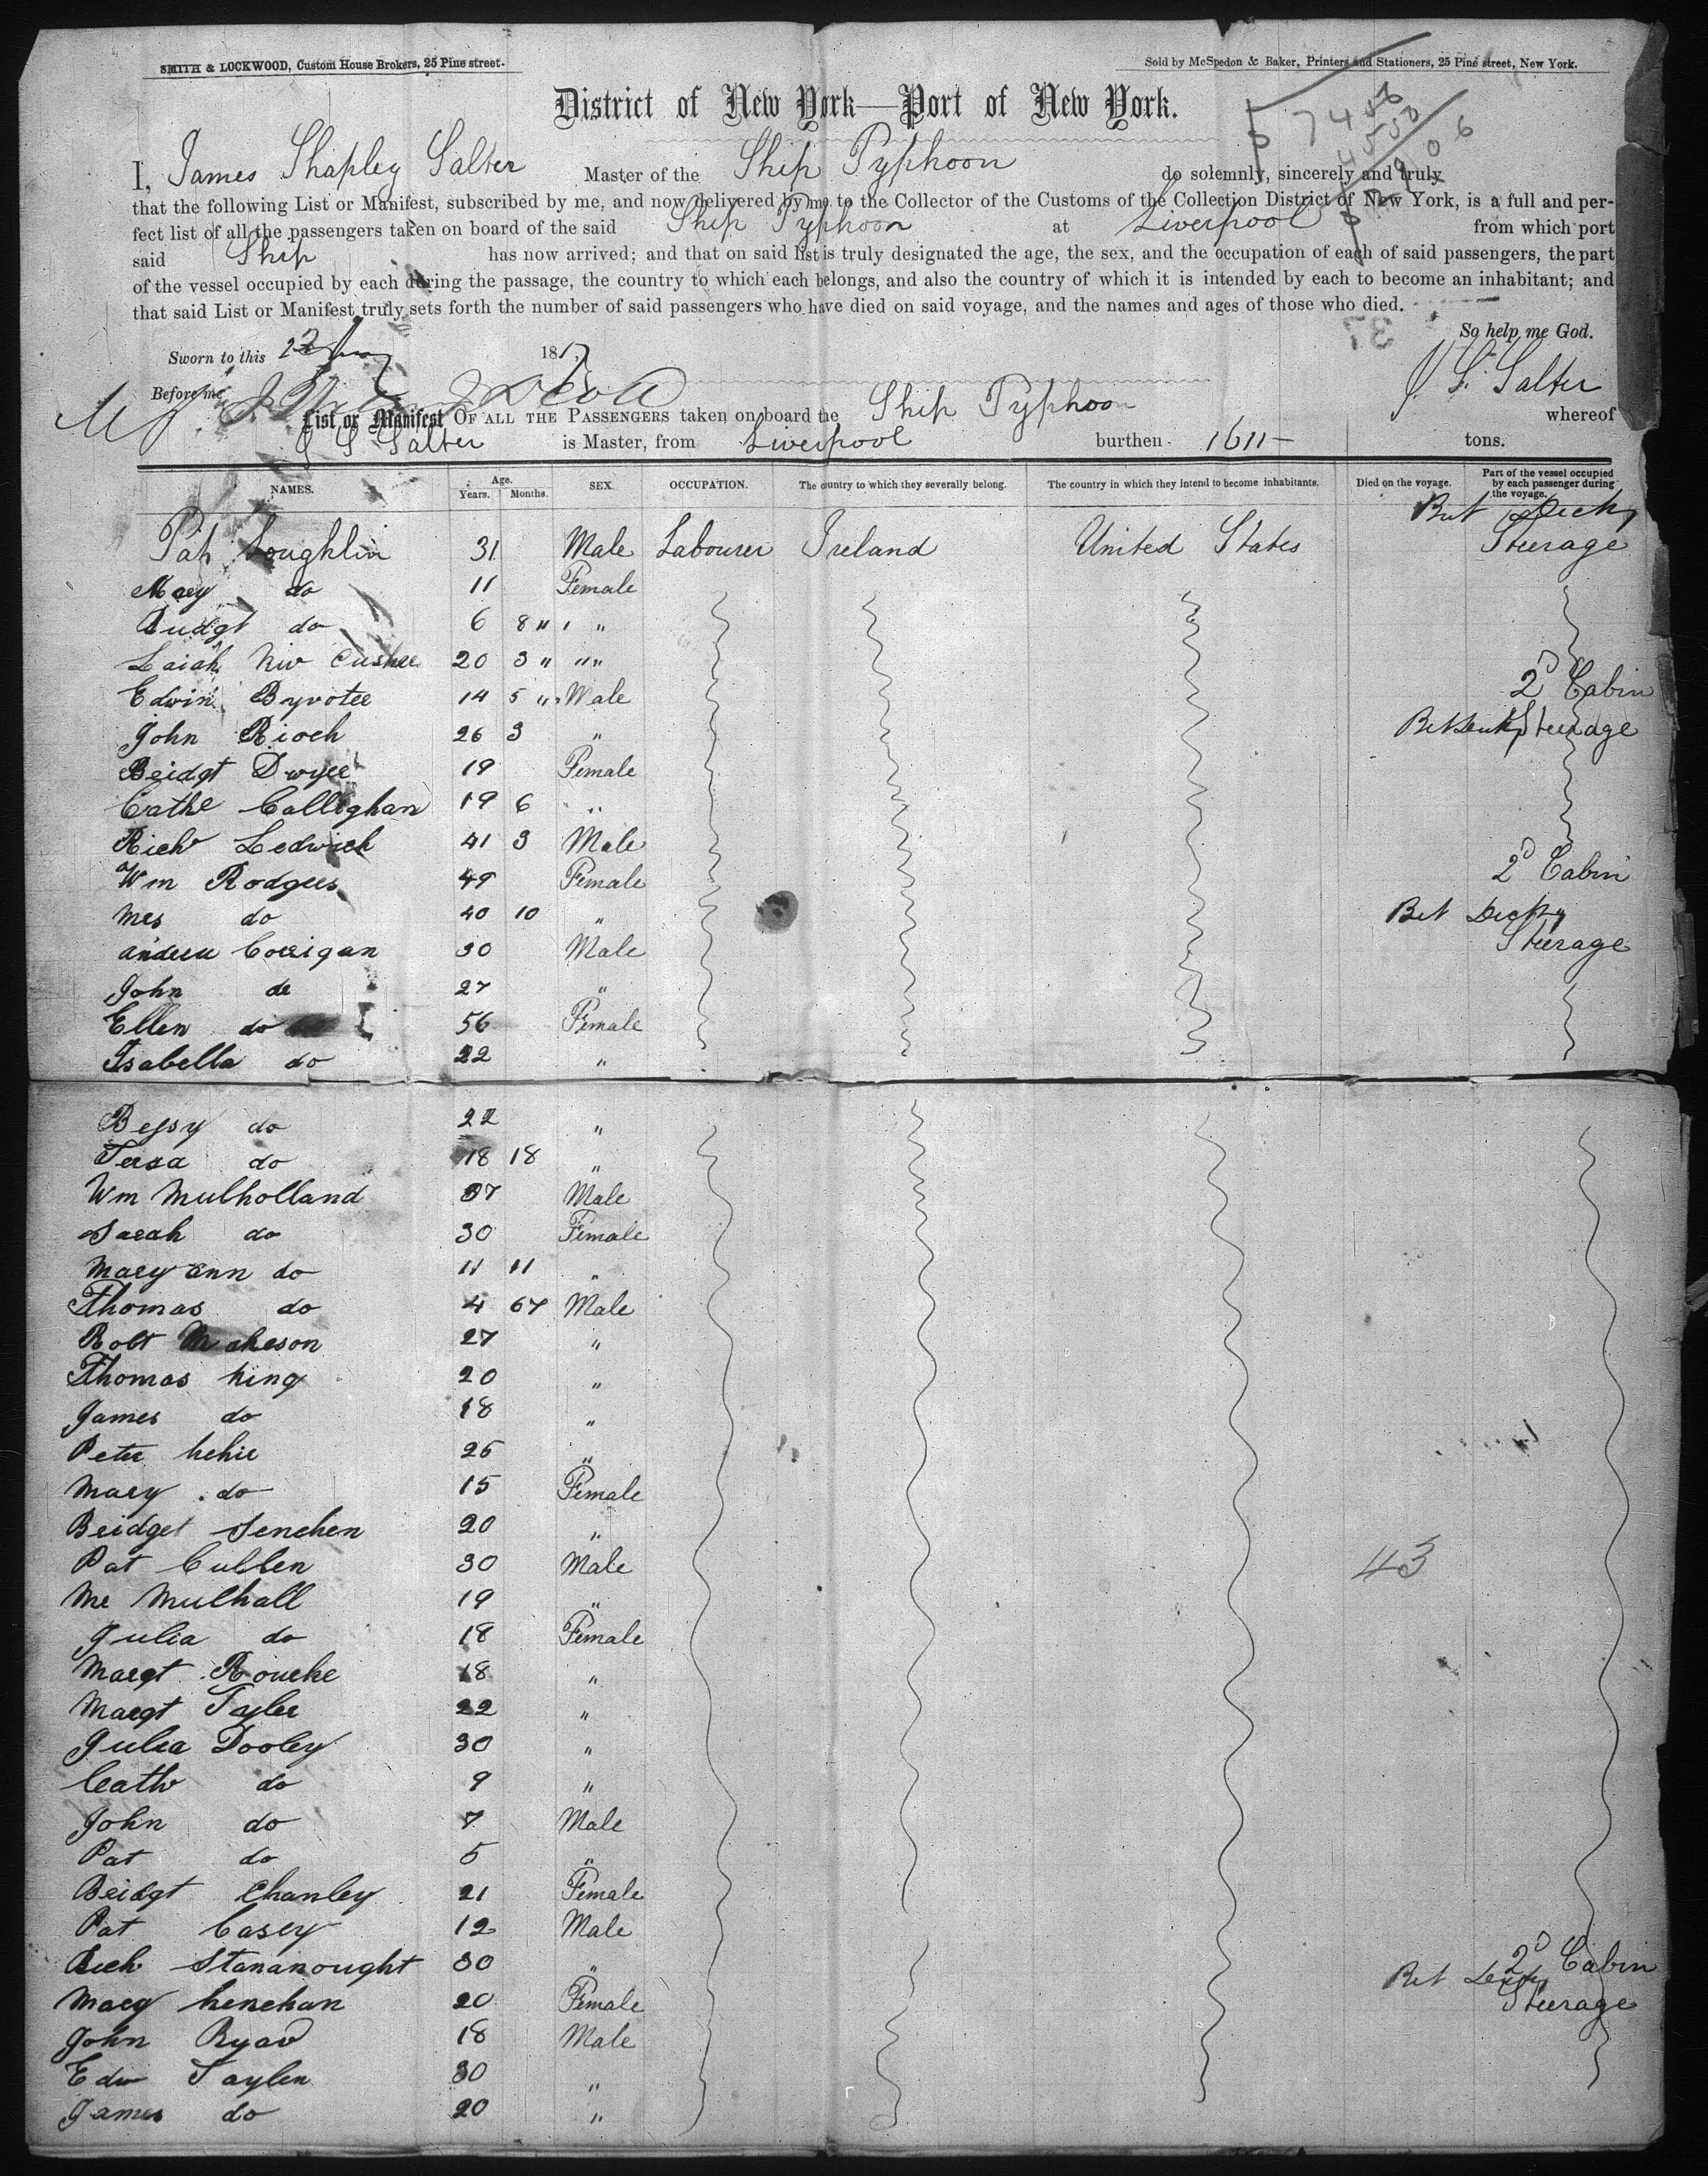 SMITH & LOCKWOOD, Custom House Brokers, 25 Pine street.
Sold by McSpedon & Baker, Printers and Stationers, 25 Pine street, New York.
District of New York—Port of New York.
I, James Shapley Salter Master of the Ship Typhoon do solemnly, sincerely and truly
that the following List or Manifest, subscribed by me, and now delivered by me to the Collector of the Customs of the Collection District of New York, is a full and per-
fect list of all the passengers taken on board of the said Ship Typhoon at Liverpool from which port
said Ship has now arrived; and that on said list is truly designated the age, the sex, and the occupation of each of said passengers, the part
of the vessel occupied by each during the passage, the country to which each belongs, and also the country of which it is intended by each to become an inhabitant; and
that said List or Manifest truly sets forth the number of said passengers who have died on said voyage, and the names and ages of those who died.
So help me God.
Sworn to this 185
J. S. Salter
Before me
List or Manifest OF ALL THE PASSENGERS taken on board the Ship Typhoon whereof
J S Salter is Master, from Liverpool burthen 1611 tons.
NAMES. Age. Years. Months. SEX. OCCUPATION. The country to which they severally belong. The country in which they intend to become inhabitants. Died on the voyage. Part of the vessel occupied by each passenger during the voyage.
Bet Decks
Pat Loughlin 31 Male Labourer Ireland United States Steerage
Mary do 11 Female
Bridgt do 6 8 " "
20 3 " "
Edwin 14 5 " Male 2D Cabin
John Rioch 26 3 " Bet Decks Steerage
Bridgt Dwyer 19 Female
Cathe Calleghan 19 6 "
Richd Ledwich 41 3 Male
Wm Rodgers 49 Female 2D Cabin
Mrs do 40 10 " Bet Decks
Andrew Corrigan 30 Male Steerage
John do 27 "
Ellen do 56 Female
Isabella do 22 "
Bessy do 22 "
Tersa do 18 18 "
Wm Mulholland 37 Male
Sarah do 30 Female
Mary Ann do 11 11 "
Thomas do 4 67 Male
Robt 27 "
Thomas King 20 "
James do 18 "
Peter Kehir 25 "
Mary do 15 Female
Bridget Senchen 20 "
Pat Cullen 30 Male 43
Mulhall 19 "
Julia do 18 Female
Margt Rourke 18 "
Margt Tyler 22 "
Julia Dooley 30 "
Cath do 9 "
John do 7 Male
Pat do 5 "
Bridgt Chanley 21 Female
Pat Casey 12 Male
Rich Stananought 30 " 2D Cabin
Bet Decks
Mary Kenehan 20 Female Steerage
John Ryan 18 Male
Edw Taylen 30 "
James do 20 "